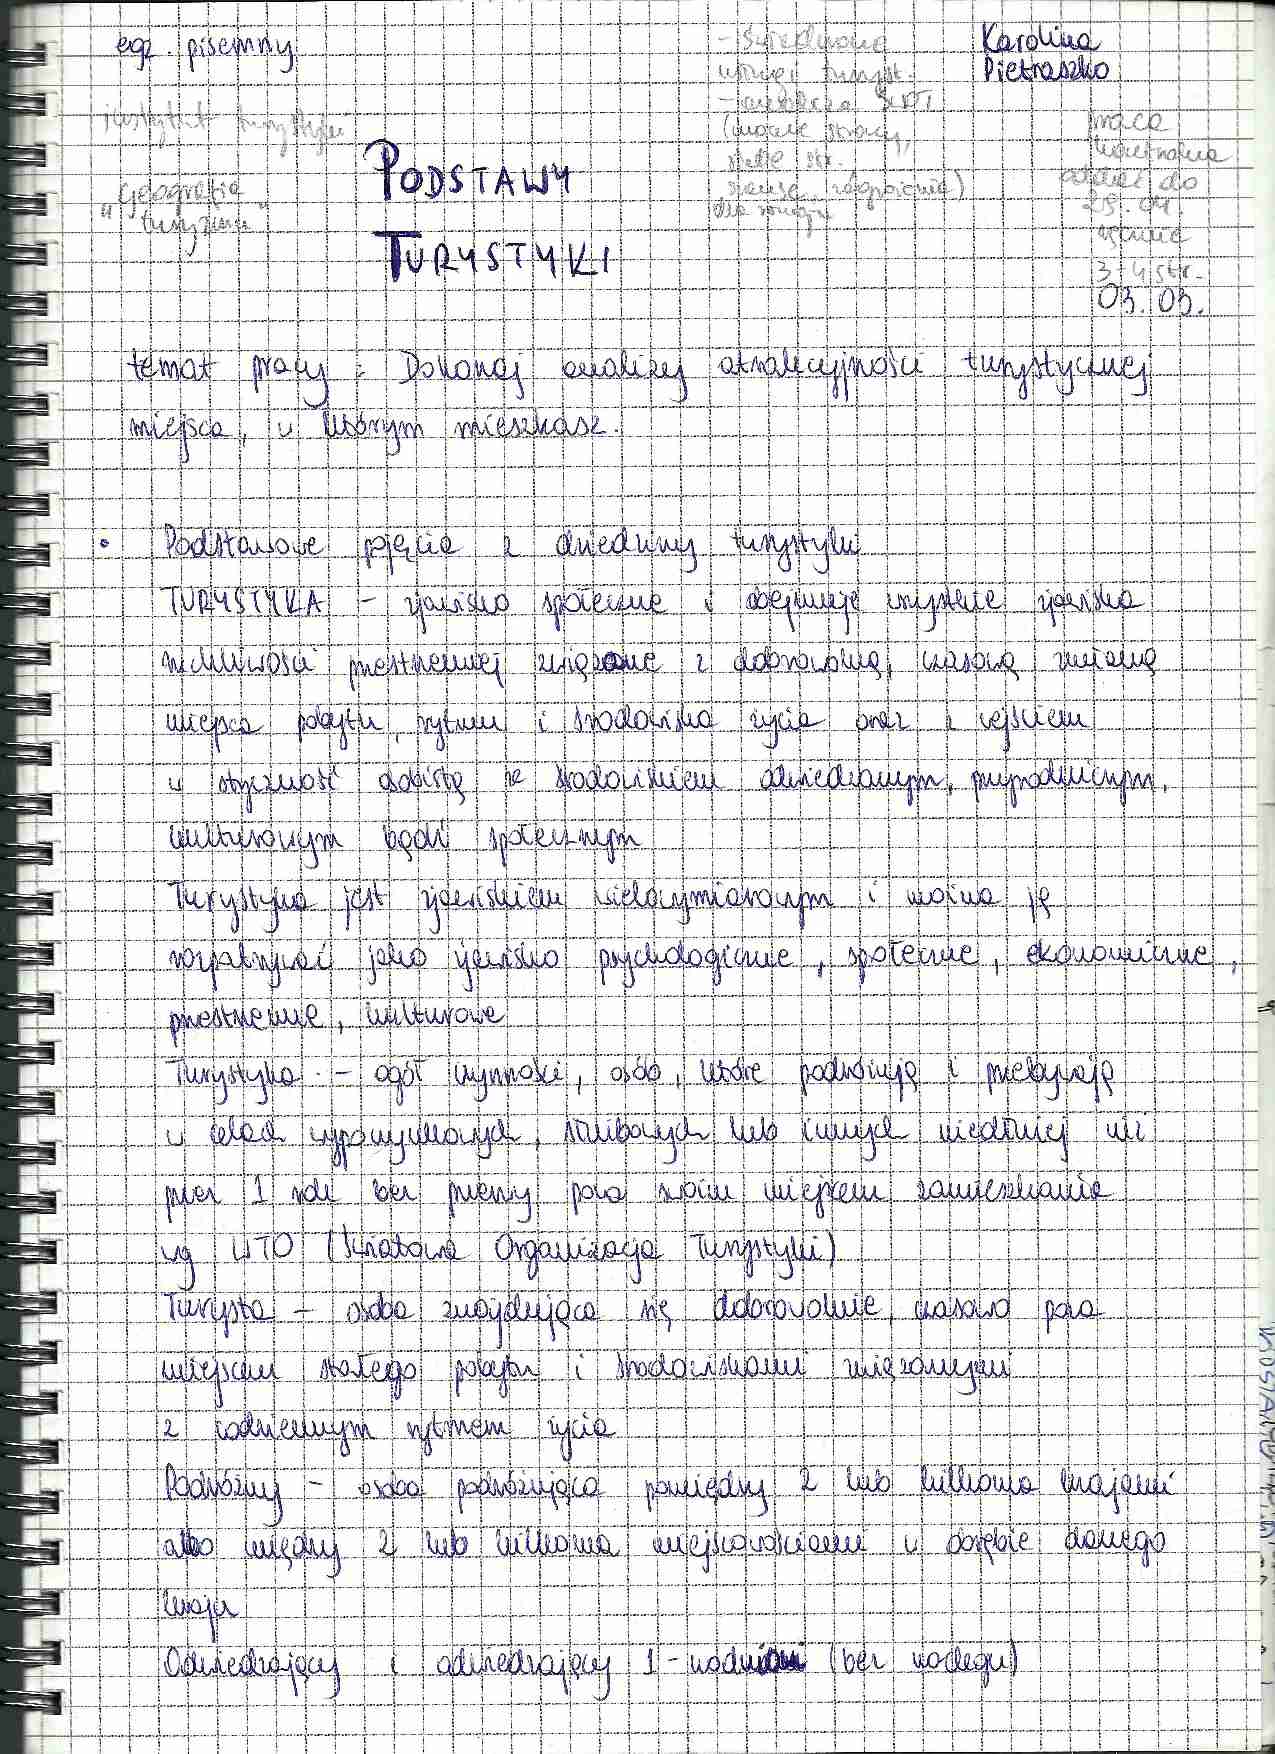 egz. pisemny
Karolina
Pietraszko
instytut turystyki
"Geografia
turyzmu"
- świadczone
usługi turyst.
(mocne strony,
słabe str.
szanse, zagrożenia)
dla
praca
semestralna
oddać do
29.04.
ręcznie
3-4 str.
03.03.
PODSTAWY
TURYSTYKI
temat pracy : Dokonaj analizy atrakcyjności turystycznej
miejsca, w którym mieszkasz.
• Podstawowe pojęcia z dziedziny turystyki
TURYSTYKA - zjawisko społeczne i obejmuje wszystkie zjawiska
ruchliwości przestrzennej związane z dobrowolną, czasową zmianą
miejsca pobytu, rytmu i środowiska życia oraz z wejściem
w styczność osobistą ze środowiskiem odwiedzanym, przyrodniczym,
kulturowym bądź społecznym
Turystyka jest zjawiskiem wielowymiarowym i można ją
rozpatrywać jako zjawisko psychologiczne, społeczne, ekonomiczne,
przestrzenne, kulturowe
Turystyka - ogół czynności, osób, które podróżują i przebywają
w celach wypoczynkowych, służbowych lub innych niedłużej niż
przez 1 rok bez przerwy poza swoim miejscem zamieszkania
wg WTO (Światowa Organizacja Turystyki)
Turysta - osoba znajdująca się dobrowolnie, czasowo poza
miejscem stałego pobytu i środowiskami związanymi
z codziennym rytmem życia
Podróżny - osoba podróżująca pomiędzy 2 lub kilkoma krajami
albo między 2 lub kilkoma miejscowościami w obrębie danego
kraju
Odwiedzający i odwiedzający 1-dniowi (bez noclegu)